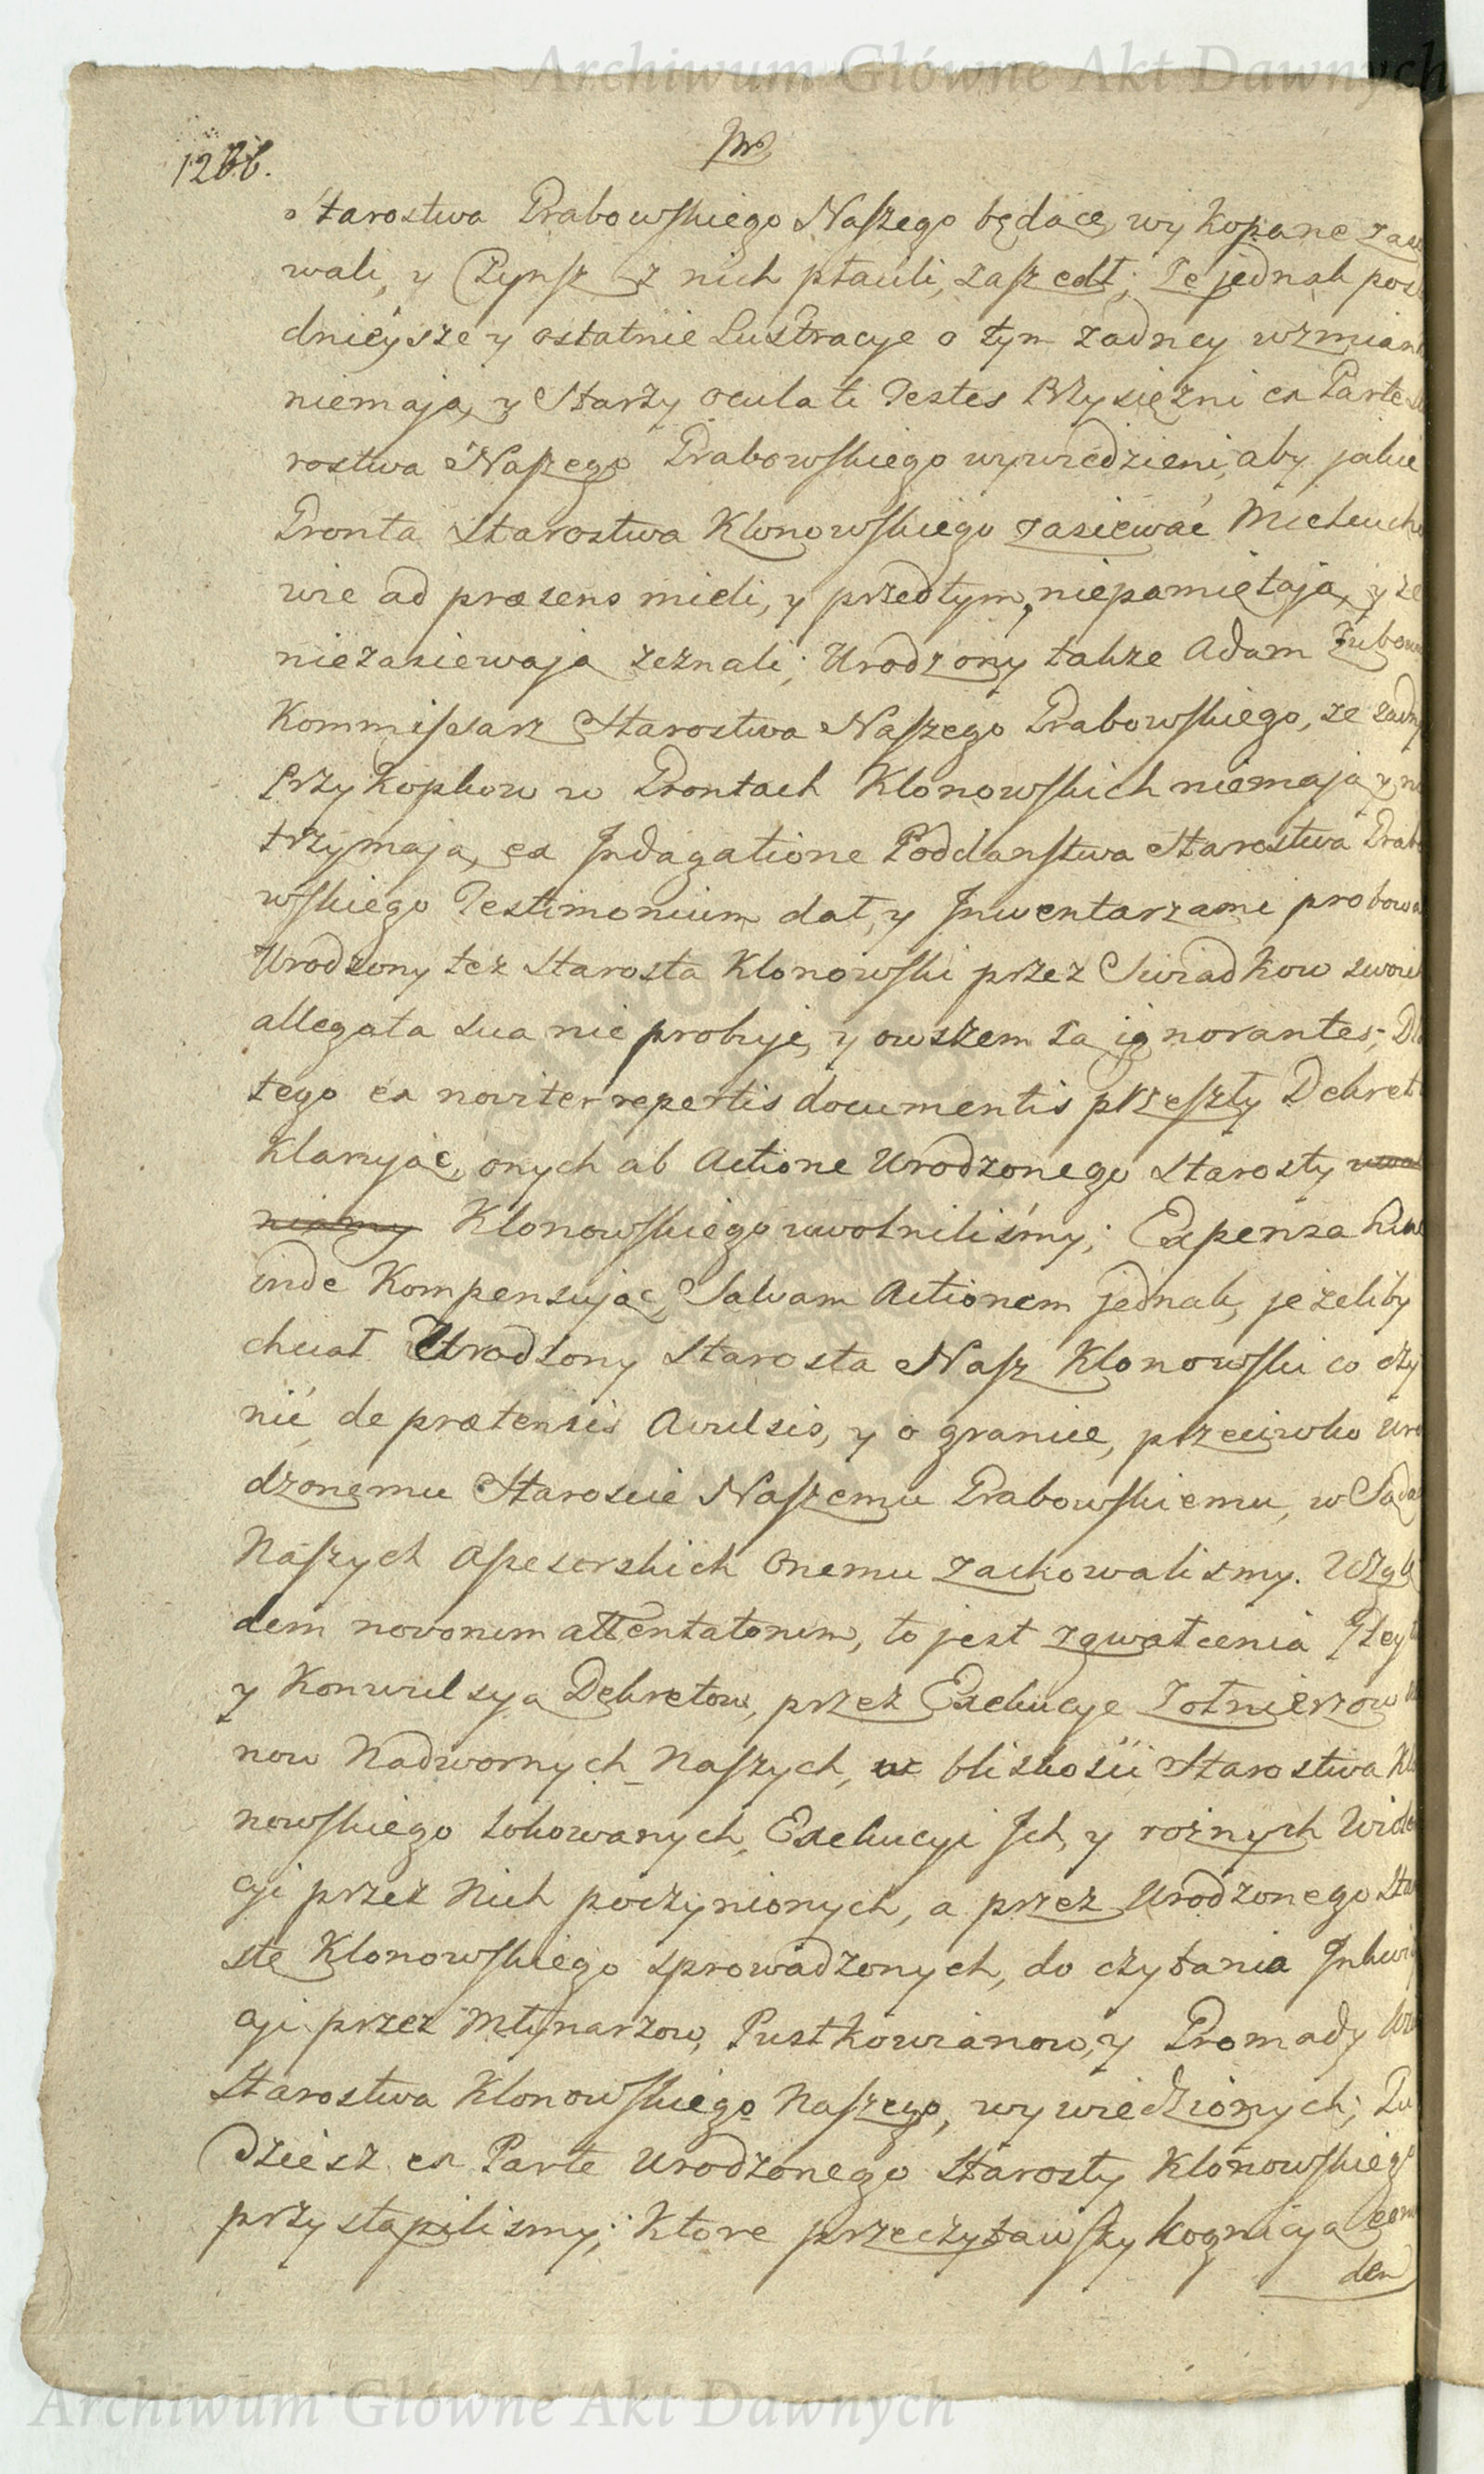 Archiwum Główne Akt Dawnych
Starostwa Grabowskiego Naszego będące, wykopane
wali, y Czynsz z nich płacili, zaszedł; Ze jednak
dnieysze y ostatnie Lustracye o tym żadney wzmian
niemaią, y Starzy oculati Testes Przysiężni ex Parte
rostwa Naszego Grabowskiego wywiedzieni, aby jakie
Gronta Starostwa Klonowskiego zasiewać
wie ad præsens mieli, y przedtym, niepamiętają, y że
niezasiewają zeznali; Urodzony także Adam
Kommissarz Starostwa Naszego Grabowskiego, że
Przykopkow w Grontach Klonowskich niemają y
trzymają, ex Indagatione Poddanstwa Starostwa Grabo
wskiego Testimonium dał, y Inwentarzami probowa
Urodzony też Starosta Klonowski przez Swiadkow swoich
allegata sua nie probuje, y owszem są ignorantes; Dla
tego ex noviter repertis documentis przeszły Dekret
Klaruiąc, onych ab Actione Urodzonego Starosty
niamy Klonowskiego uwolniliśmy; Expensa hinc
inde Kompensując, Salvam Actionem jednak, jeżeliby
chciał Urodzony Starosta Nasz Klonowski co czy
nić de prætensis Avulsis, y o granice, przeciwko Uro
dzonemu Staroscie Naszemu Grabowskiemu, w Sąda
Naszych Assesorskich Onemu zachowalismy. Wzglę
dem novorum attentatorum, to jest zgwałcenia Gleytu
y Konwulsyą Dekretow, przez Exekucye Żołnierzow
now Nadwornych Naszych, w bliskości Starostwa Klo
nowskiego lokowanych, Exekucyi Ich, y rożnych
cyi przez Nich poczynionych, a przez Urodzonego Staro
stę Klonowskiego sprowadzonych, do czytania Inkwizy
cyi przez Młynarzow, Pustkowianow, y Gromady
Starostwa Klonowskiego Naszego, wywiedzionych; Tu
dziesz ex Parte Urodzonego Starosty Klonowskiego
przystąpilismy; Ktore przeczytawszy kognicya
den
Archiwum Główne Akt Dawnych